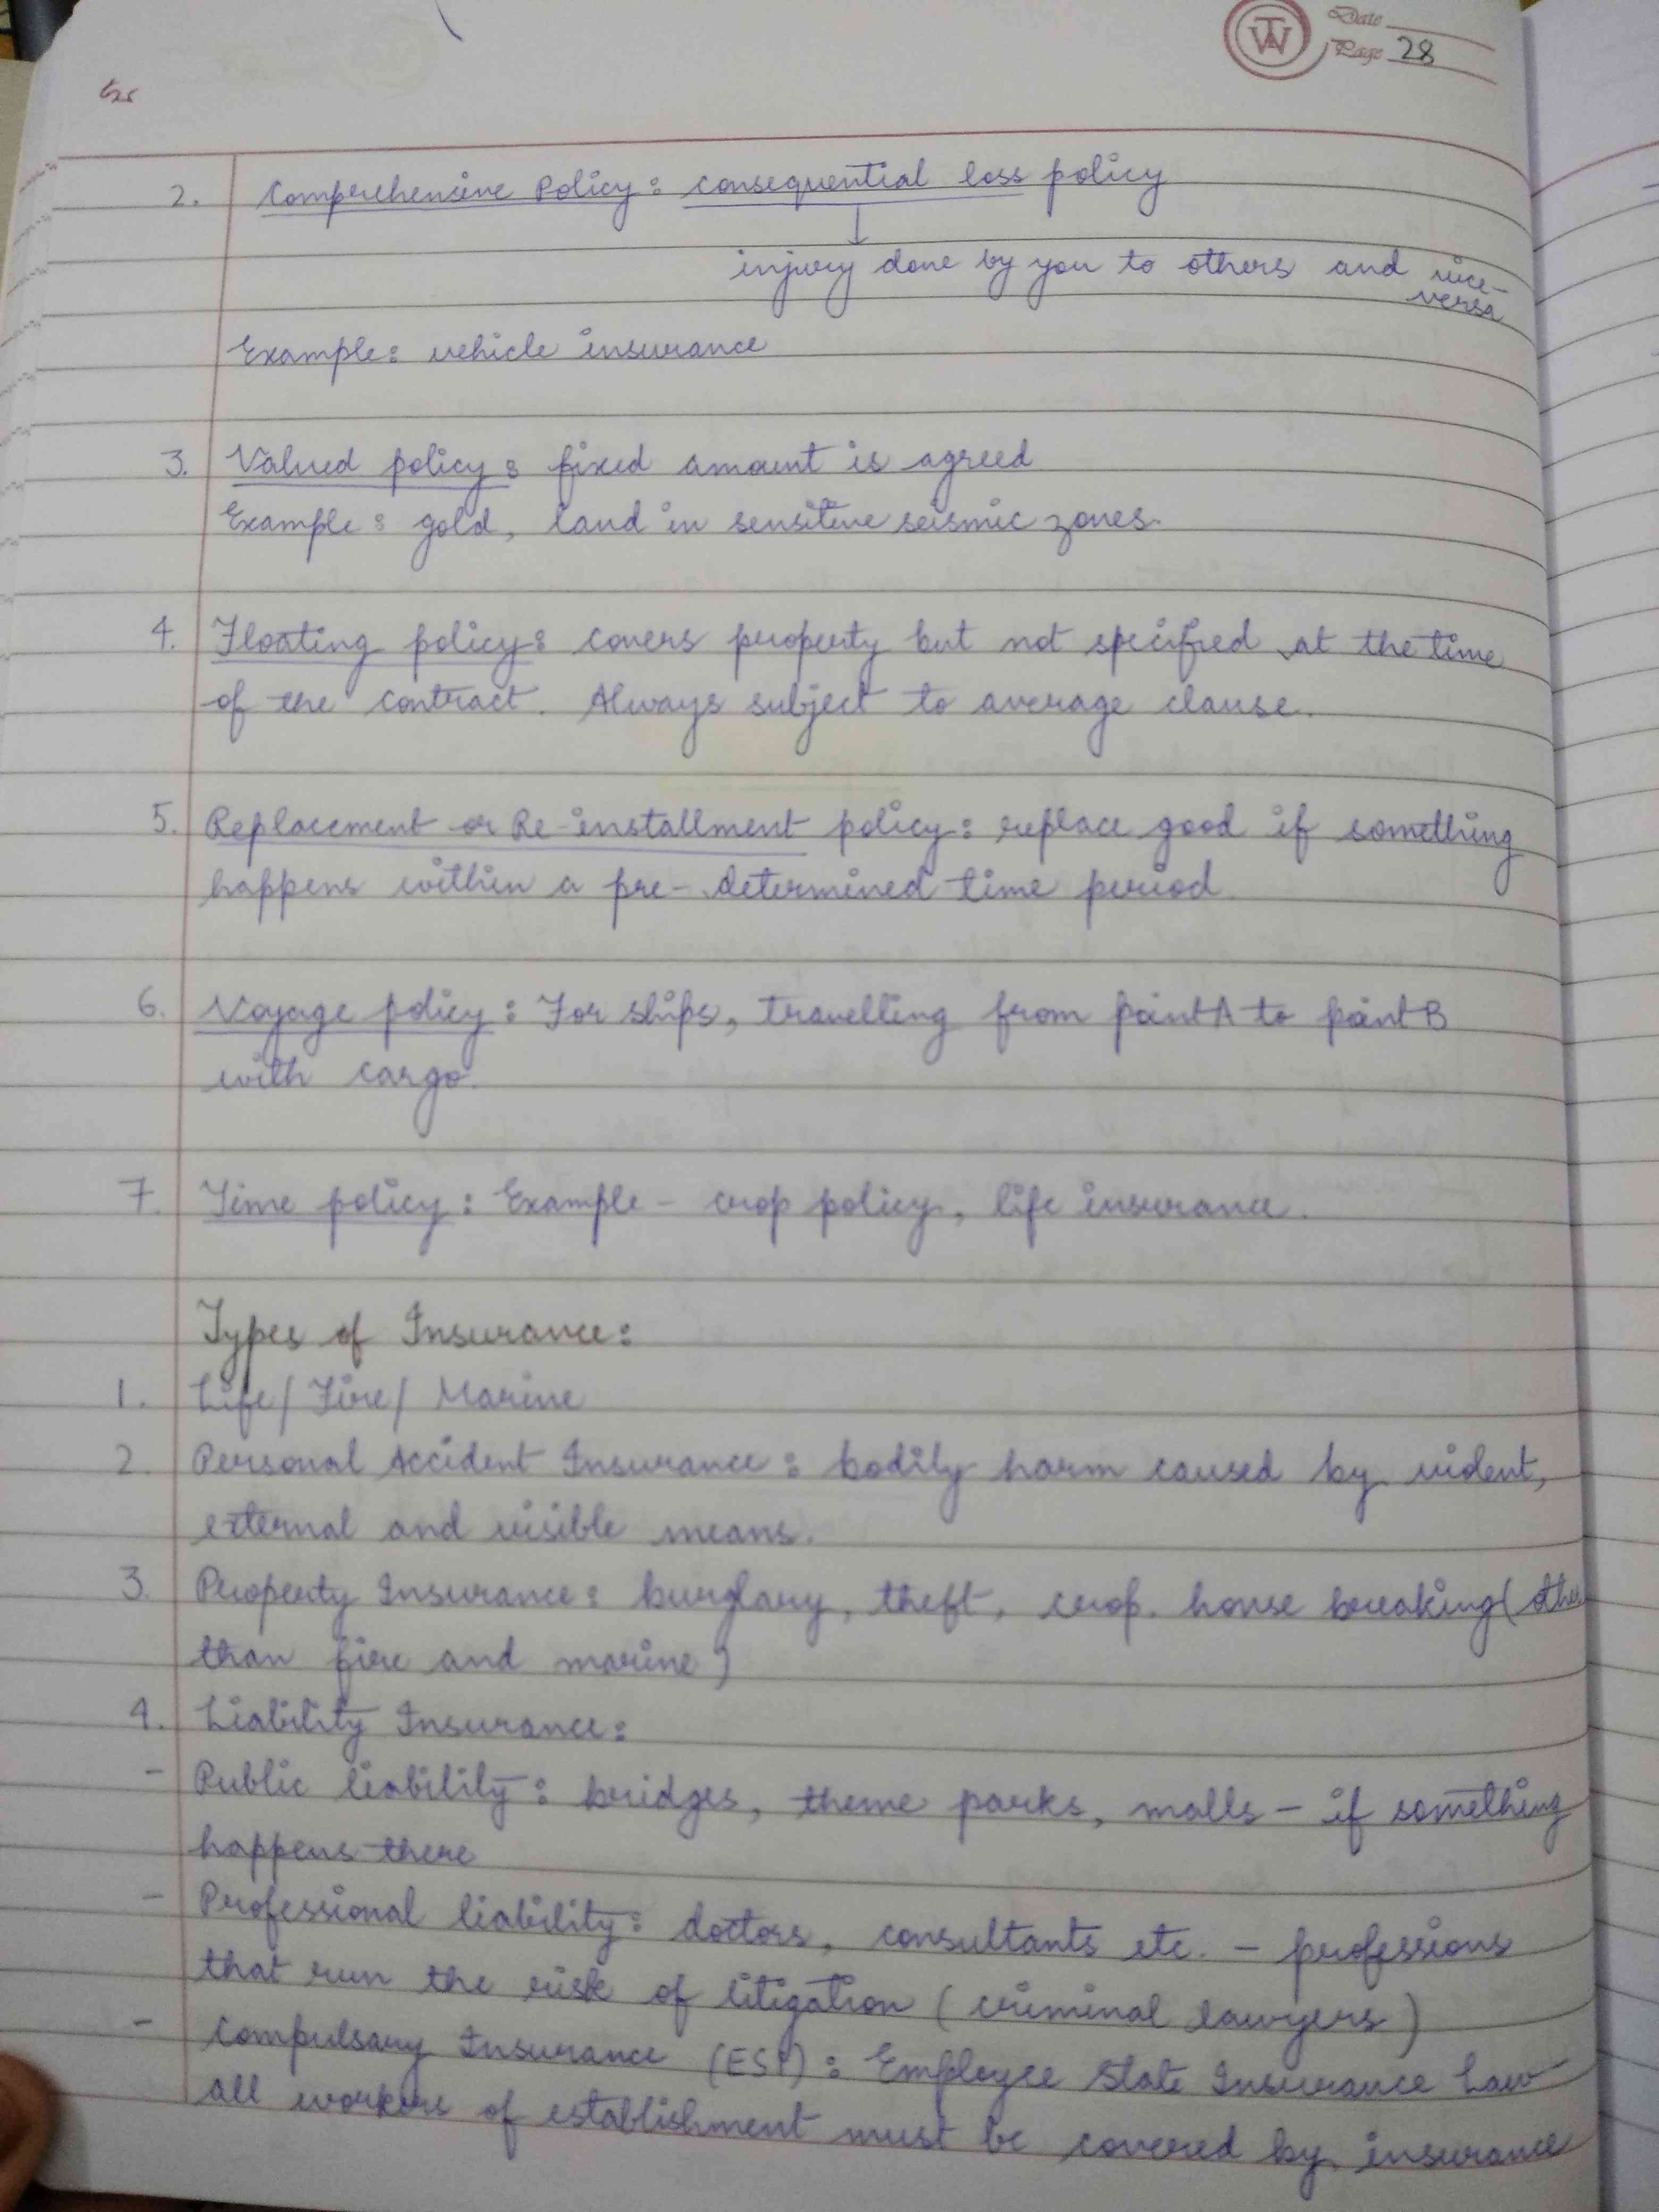 Date
Page 28
2. Comprehensive Policy: consequential loss policy
↓
injury done by you to others and vice-
versa
Example: vehicle insurance
3. Valued policy: fixed amount is agreed
Example: gold, land in sensitive seismic zones.
4. Floating policy: covers property but not specified at the time
of the contract. Always subject to average clause.
5. Replacement or Re-installment policy: replace good if something
happens within a pre-determined time period.
6. Voyage policy: For ships, travelling from point A to point B
with cargo.
7. Time policy: Example - crop policy, life insurance.
Types of Insurance:
1. Life/ Fire/ Marine
2. Personal Accident Insurance: bodily harm caused by violent,
external and visible means.
3. Property Insurance: burglary, theft, crop. house breaking (other
than fire and marine)
4. Liability Insurance:
- Public liability: bridges, theme parks, malls - if something
happens there
- Professional liability: doctors, consultants etc. - professions
that run the risk of litigation (criminal lawyers)
- Compulsary Insurance (ESI): Employee State Insurance Law
all workers of establishment must be covered by insurance